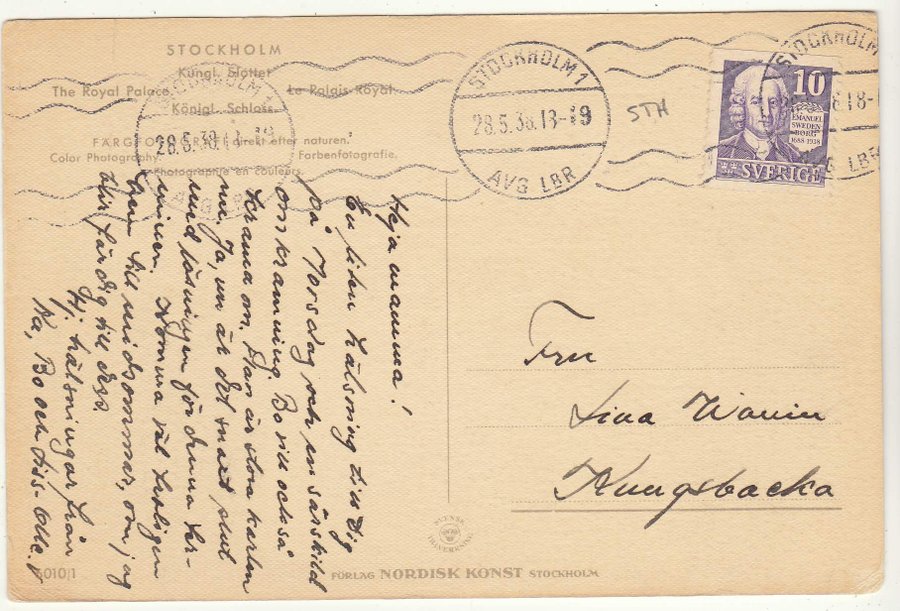 STOCKHOLM
Kungl. Slottet
The Royal Palace. Le Palais Royal.
Königl. Schloss.
"direkt efter naturen."
Color Photography. Farbenfotografie.
Photographie en couleurs.
STOCKHOLM 1
28.5.38.18-19
AVG LBR
STOCKHOLM 1
28.5.38.18-19
AVG LBR
STH
STOCKHOLM
18-
AVG LBR
10
EMANUEL
SWEDEN-
BORG
1688-1938
SVERIGE
Heja mamma!
En liten hälsning till Dig
på Morsdag och en särskild
omkramning. Bo vill också
krama om. Han är stora karlen
nu. Ja, nu är det snart slut
med läsningen för denna ter-
minen. Kommer väl troligen
hem till midsommar, om jag
blir färdig till dess.
Hj. hälsningar från
Bo och Lis-Olle.
Fru
Lina
Kungsbacka
6010/1
SVENSK
TILLVERKNING
FÖRLAG NORDISK KONST STOCKHOLM